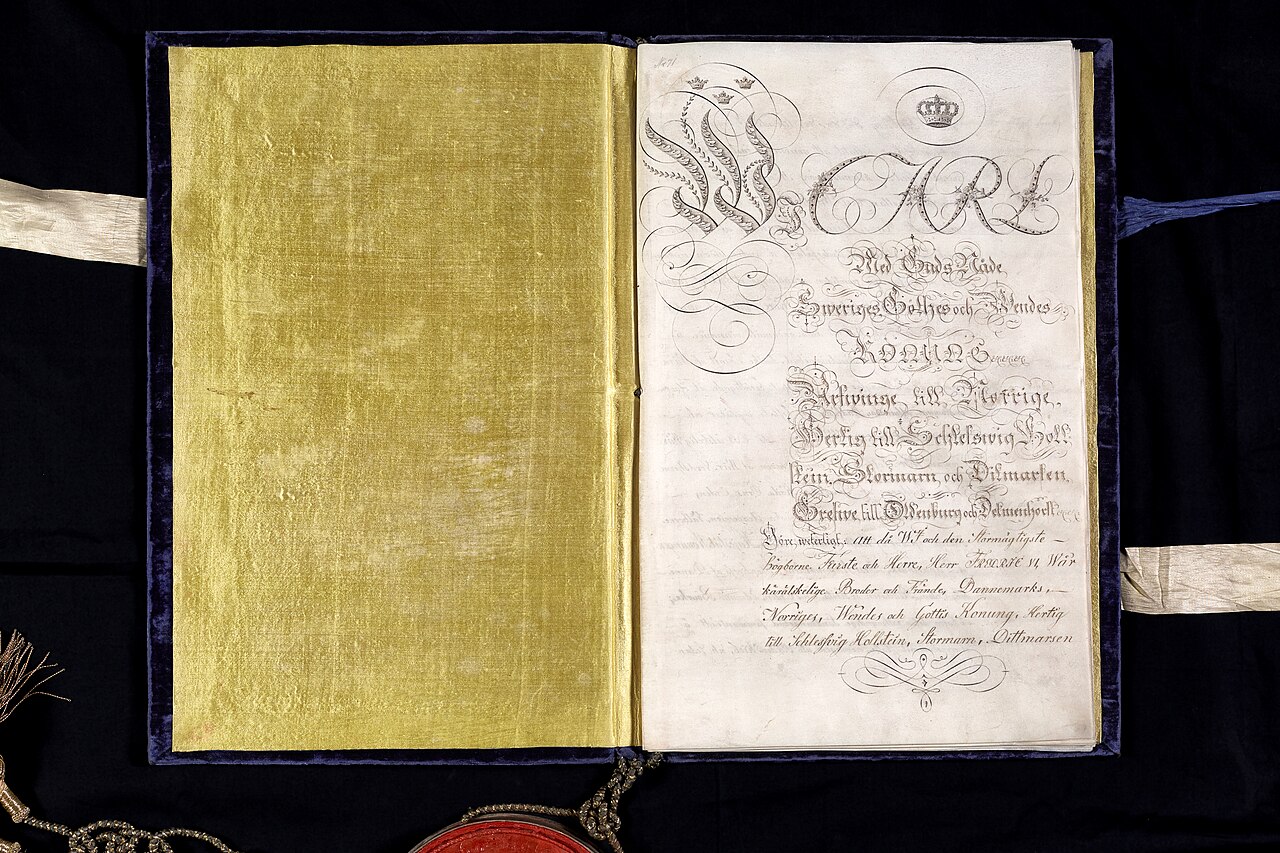 No 71.
Wi CARL
Med Guds Nåde
Sweriges Göthes och Wendes
KONUNG
Arfwinge till Norrige,
Hertig till Schleswig Holl-
stein, Stormarn, och Ditmarsen,
Grefwe till Oldenburg och Delmenhorst
Göre weterligt: att då Wi och den Stormägtigste
högborne Furste och Herre, Herr FREDRIC VI, Wår
käräläskelige Broder och Frände, Dannemarks,
Norriges, Wendes och Gothes Konung, Hertig
till Schlesswig Hollstein, Stormarn, Dittmarsen